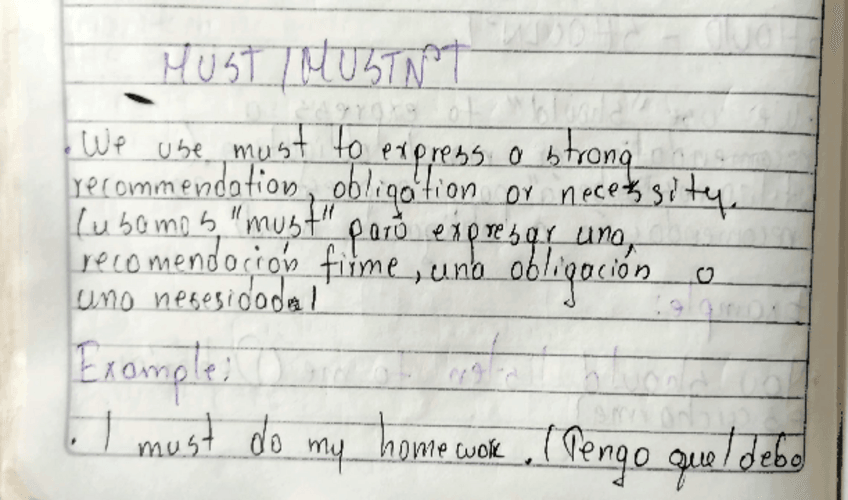 MUST / MUSTN'T
. We use must to express a strong
recommendation, obligation or necessity.
(usamos "must" para expresar una,
recomendación firme, una obligación o
una nesesidad)
Example:
. I must do my homework. (Tengo que/debo